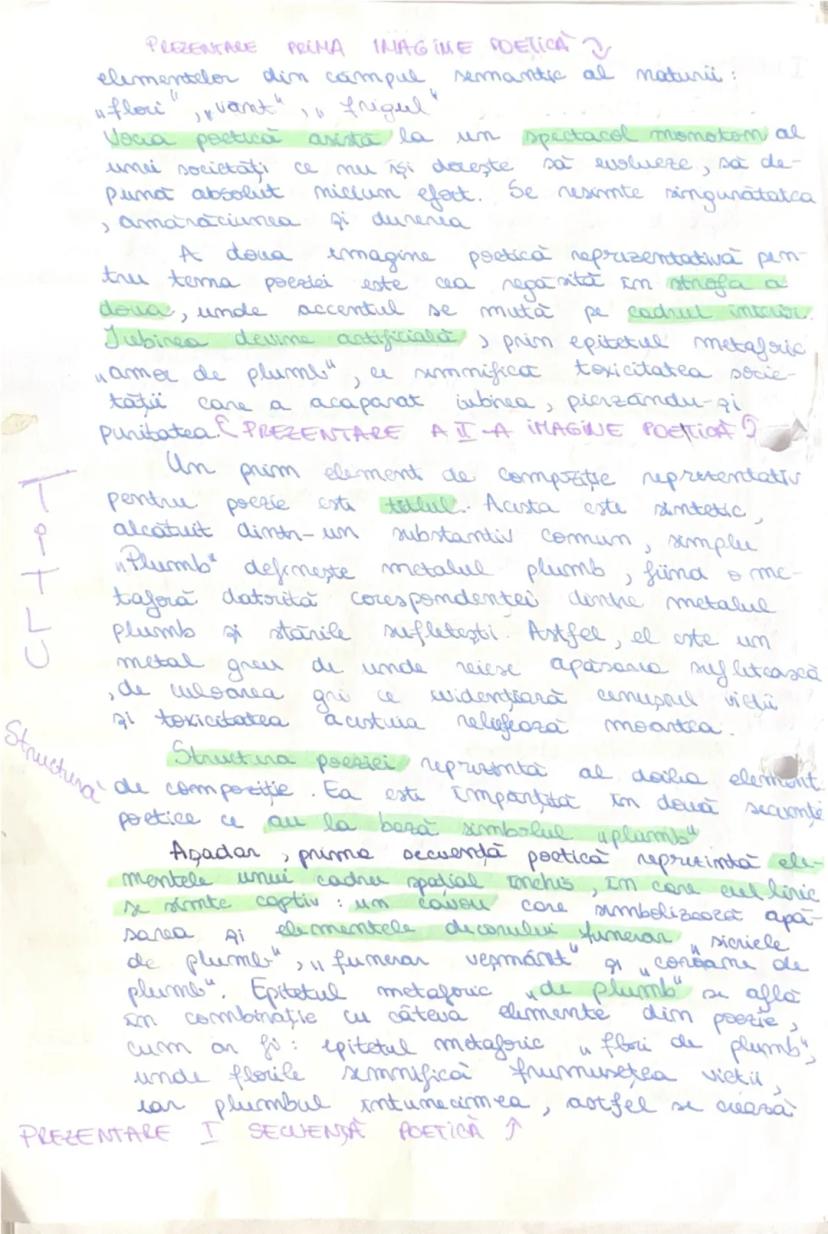 PREZENTARE PRIMA IMAGINE POETICĂ
elementelor din câmpul semantic al naturii:
„flori”, „vânt”, „frigul”
Vocea poetică asistă la un spectacol monoton al
unei societăți ce nu își dorește să evolueze, să de-
pună absolut niciun efort. Se resimte singurătatea
, amărăciunea și durerea
A doua imagine poetică reprezentativă pen-
tru tema poeziei este cea regăsită în strofa a
doua, unde accentul se mută pe cadrul interior.
Iubirea devine artificială, prin epitetul metaforic
„amor de plumb”, ce semnifică toxicitatea socie-
tății care a acaparat iubirea, pierzându-și
puritatea. PREZENTARE A II-A IMAGINE POETICĂ
TITLU
Un prim element de compoziție reprezentativ
pentru poezie este titlul. Acesta este sintetic,
alcătuit dintr-un substantiv comun, simplu
„Plumb” definește metalul plumb, fiind o me-
taforă datorită corespondenței dintre metalul
plumb și stările sufletești. Astfel, el este un
metal greu de unde reiese apăsarea sufletească
, de culoarea gri ce evidențiază cenușiul vieții
și toxicitatea acestuia reliefează moartea.
Structura
Structura poeziei reprezintă al doilea element
de compoziție. Ea este împărțită în două secvențe
poetice ce au la bază simbolul „plumb”
Așadar, prima secvență poetică reprezintă ele-
mentele unui cadru spațial închis, în care eul liric
se simte captiv: un cavou care simbolizează apă-
sarea și elementele decorului funerar „sicriele
de plumb”, „funerar veșmânt” și „coroane de
plumb”. Epitetul metaforic „de plumb” se află
în combinație cu câteva elemente din poezie,
cum ar fi: epitetul metaforic „flori de plumb”,
unde florile semnifică frumusețea vieții,
iar plumbul întunecimea, astfel se crează
PREZENTARE I SECVENȚĂ POETICĂ